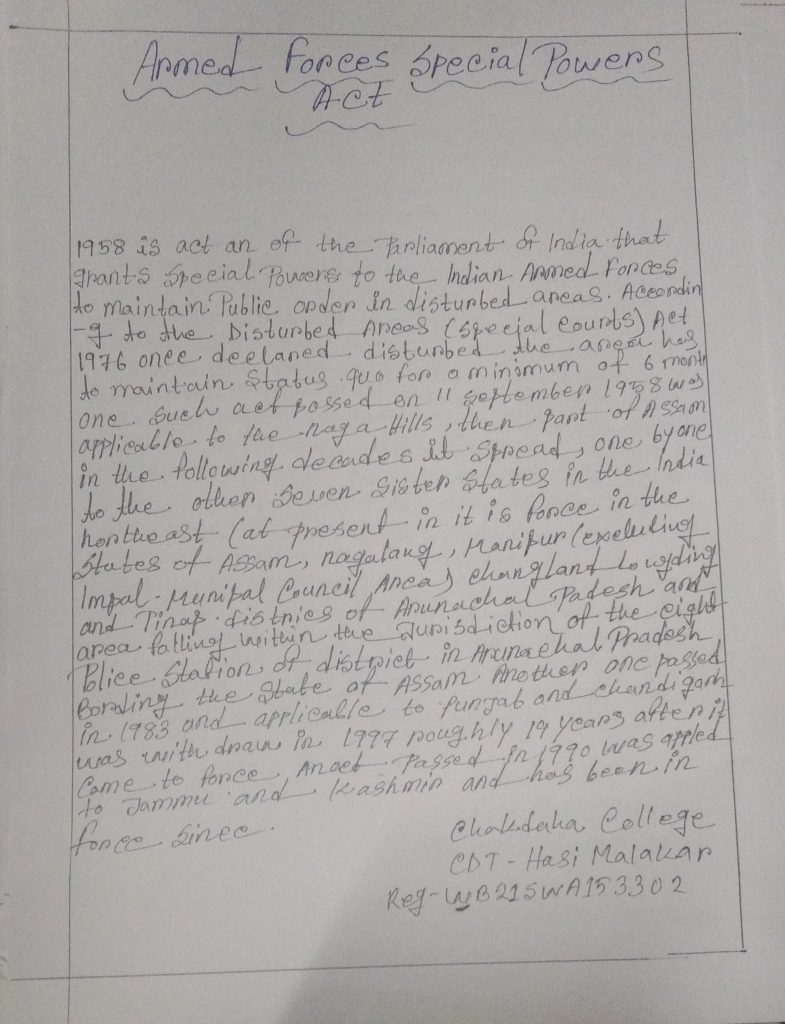 Armed Forces Special Powers
Act
1958 is act an of the Parliament of India that
grants Special Powers to the Indian Armed Forces
to maintain Public order in disturbed areas. Accordin
-g to the Disturbed Areas (special courts) Act
1976 once declared disturbed the area has
to maintain Status quo for a minimum of 6 month
one such act passed on 11 September 1958 was
applicable to the naga Hills, then part of Assam
in the following decades it spread, one by one
to the other Seven Sister States in the India
northeast (at present in it is force in the
States of Assam, nagalang, Manipur (excluding
Impal-Munipal Council Area) changland Longding
and Tirap distries of Arunachal Padesh and
area falling within the Jurisdiction of the eight
Police Station of district in Arunachal Pradesh
Bording the State of Assam Another one passed
in 1983 and applicable to Punjab and chandigarh
was with drawn in 1997 roughly 14 years after it
Came to force, An act Passed in 1990 was appled
to Jammu and Kashmir and has been in
force since.
Chakdaha College
CDT - Hasi Malakar
Reg-WB21SWA153302